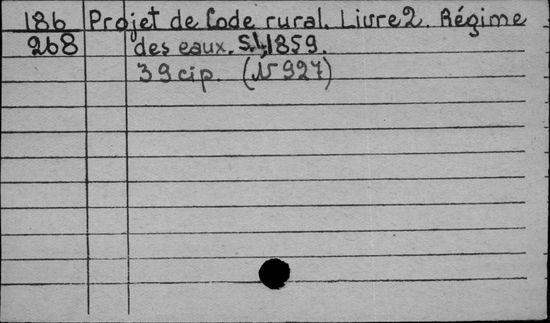 186 Projet de Code rural. Livre 2. Régime
268 des eaux. S.l, 1859.
39 cip. (15927)